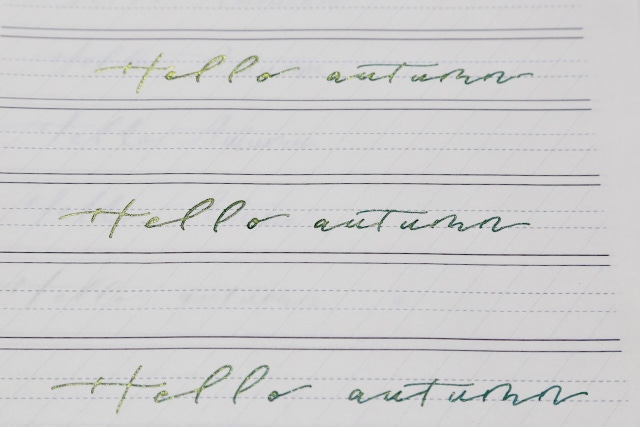 Hello autumn
Hello autumn
Hello autumn